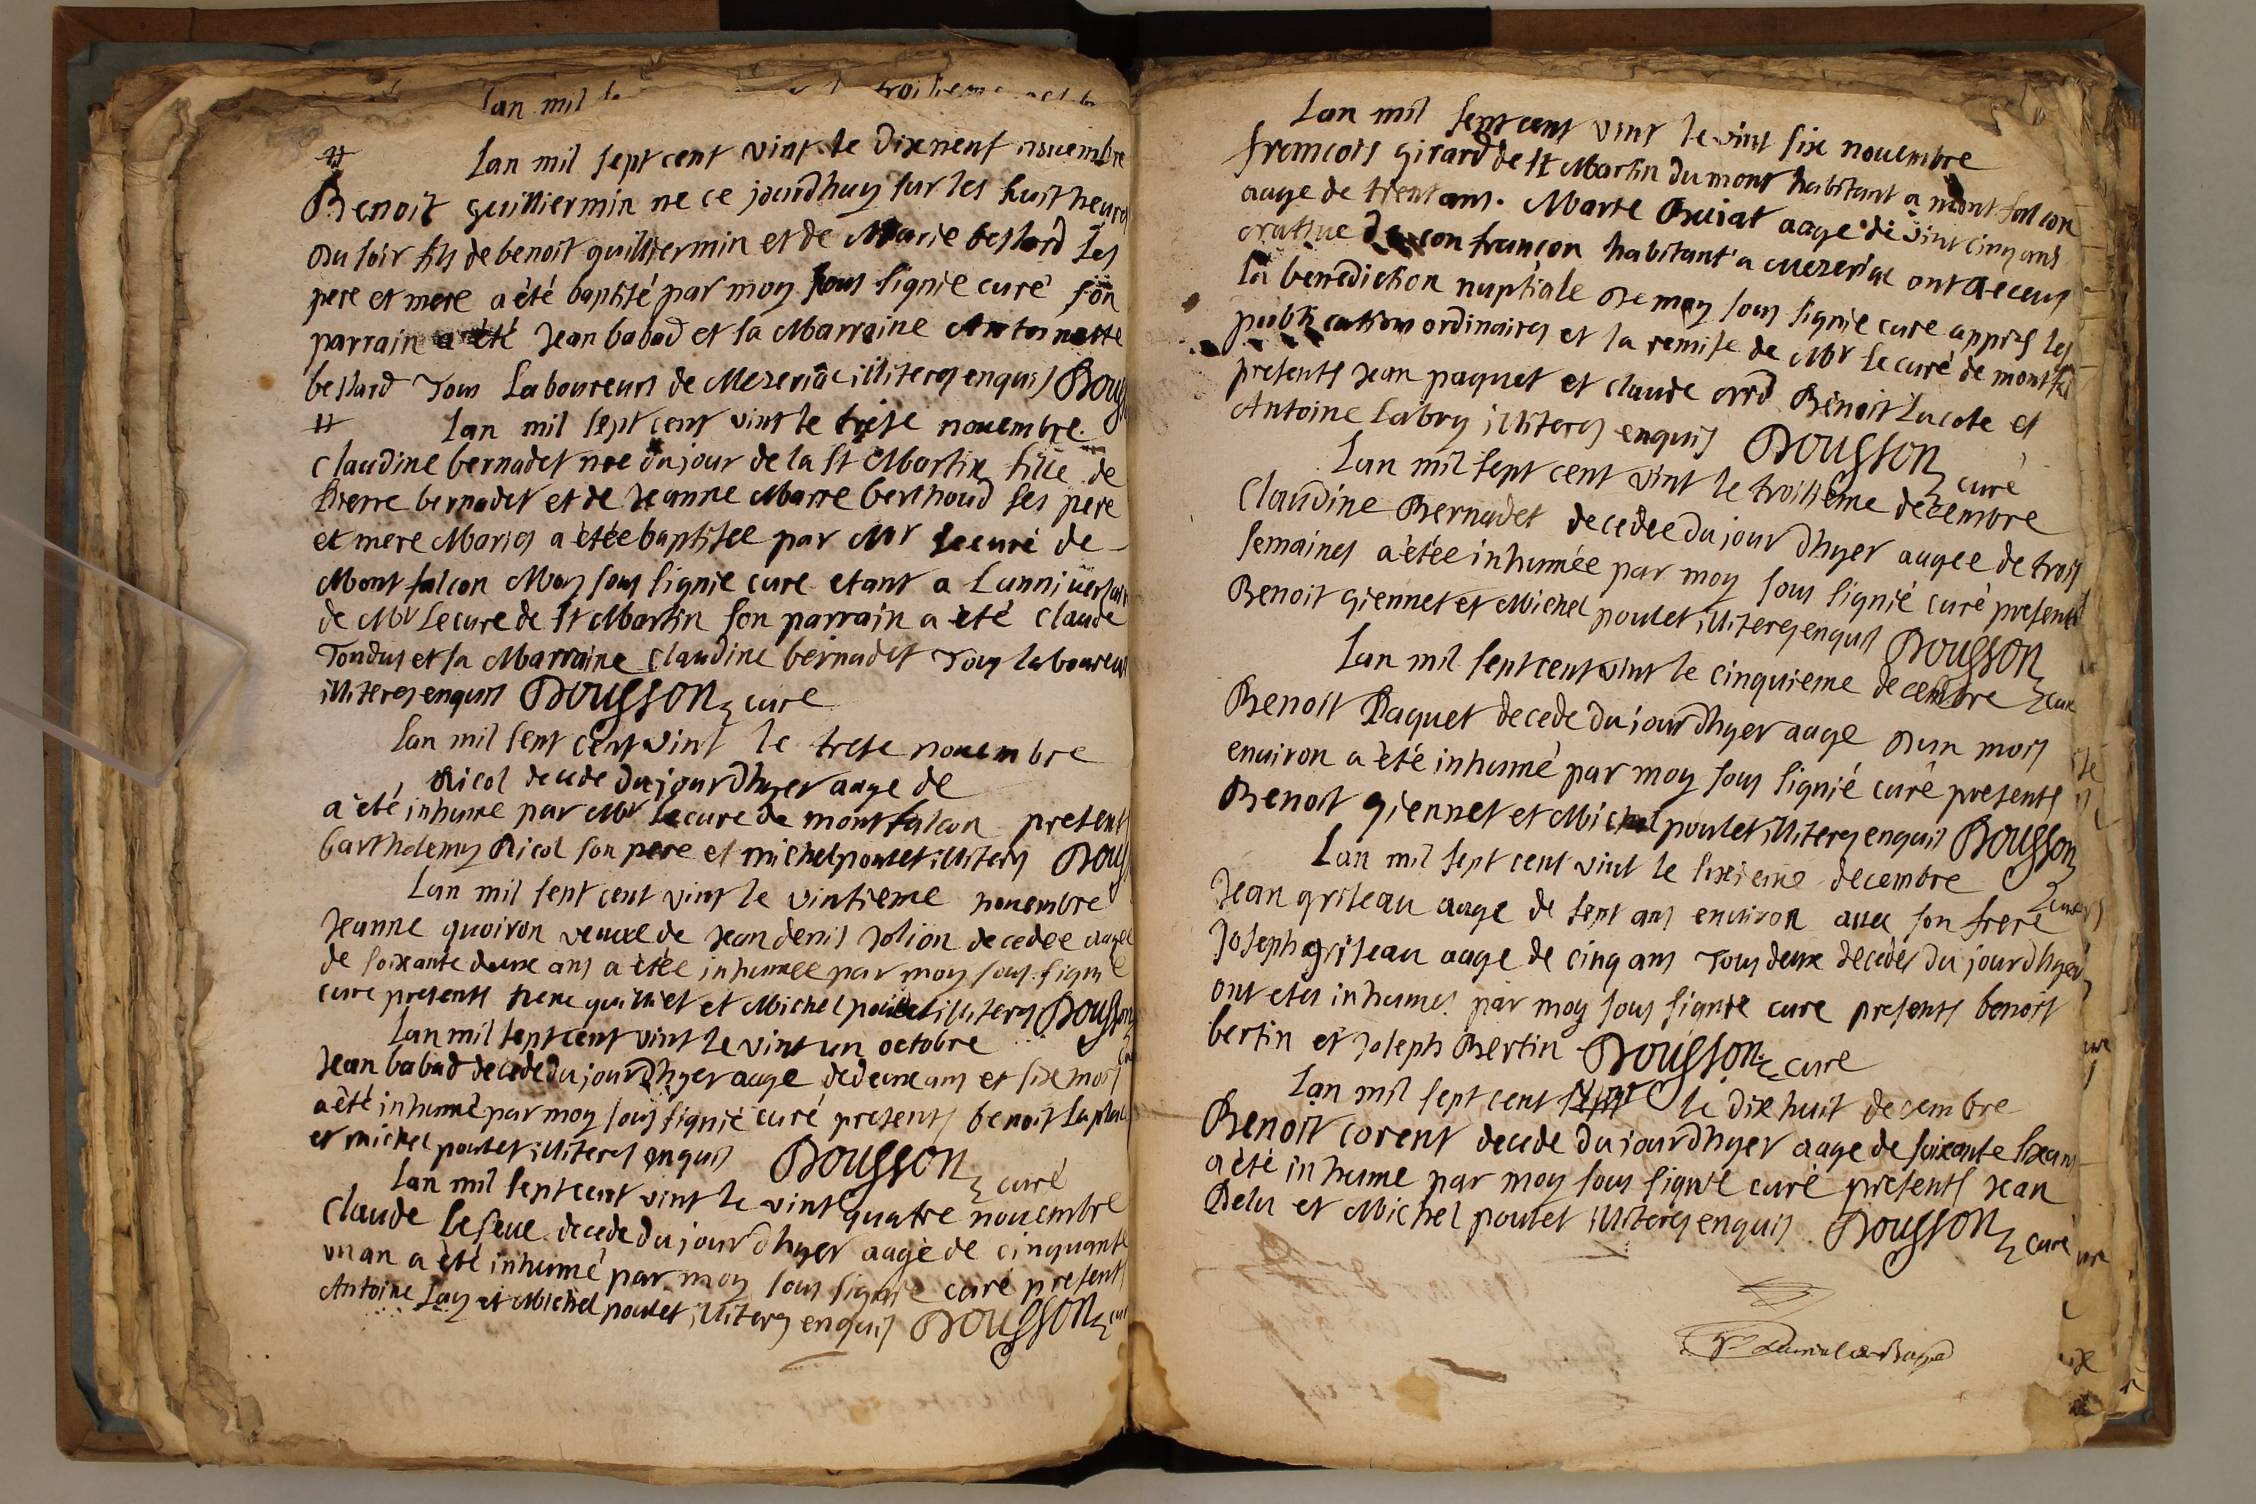 Lan mil
Lan mil sept cent vint le dixneuf nouembre
Benoit guilliermin ne ce jourdhuy sur les huit heures
du soir fils de benoit guilliermin et de Marie bessard ses
pere et mere a été baptisé par moy sous signie curé son
parrain a été Jean babad et sa Marraine Antoinette
bessard Tous Laboureurs de Mezeriac illiteres enquis
Lan mil sept cent vint le trese nouembre
Claudine bernadet nee du jour de la St Martin fille de
Pierre bernadet et de Jeanne Marie berthoud ses pere
et mere Maries a étée baptisee par Mr Lecuré de
Mont falcon Moy sous signie cure etant a Lanniversaire
de Mr Lecure de St Martin son parrain a été Claude
Tondus et sa Marraine Claudine bernadet Tous laboureurs
illiteres enquis Dousson cure
Lan mil sept cent vint le trese nouembre
Ricol decede du jour dhyer aage de
a été inhume par Mr Lecure de montfalcon present
bartholemy Ricol son pere et michel poulet illiteres
Lan mil sept cent vint le vintieme nouembre
Jeanne quoiron veuve de Jean denis Jolion decedee aagee
de soixante deuxe ans a étée inhumée par moy sous signie
cure presents et Michel poulet illiteres Dousson
Lan mil sept cent vint le vint un octobre
Jean babad decede du jour dhyer aage de deuxe ans et sixe mois
a été inhumé par moy sous signié curé presents benoit
et michel poulet illiteres enquis Dousson curé
Lan mil sept cent vint le vint quatre nouembre
Claude Leseue decede du jour dhyer aagé de cinquante
un an a été inhumé par moy sous signie curé presents
Antoine et Michel poulet illiteres enquis Dousson
Lan mil sept cent vint le vint six nouembre
francois girard de St Martin du mont habitant a mont falcon
aage de trent ans. Marie aage de vint cinq ans
natiue de confrançon habitant a Mezeriac ont receus
la benediction nuptiale de moy sous signie cure appres les
publications ordinaires et la remise de Mr Le curé de
presents Jean paquet et claude Benoit Lacote et
Antoine Labry illiteres enquis Dousson curé
Lan mil sept cent vint le troisieme decembre
Claudine Bernadet decedee du jour dhyer aagee de trois
semaines a étée inhumée par moy sous signié curé presents
Benoit giennet et Michel poulet illiteres enquis Dousson
Lan mil sept cent vint le cinquieme decembre
Benoit Paquet decede du jour dhyer aage dun mois
enuiron a été inhumé par moy sous signié curé presents
Benoit giennet et Michel poulet illiteres enquis Dousson
Lan mil sept cent vint le sixieme decembre
Jean griseau aage de sept ans enuiron auec son frere
Joseph griseau aage de cinq ans Tous deuxe decedes du jour dhyer
ont etes inhumes par moy sous signie cure presents benoit
bertin et Joseph Bertin Dousson cure
Lan mil sept cent le dixe huit decembre
Benoit corent decede du jour dhyer aage de soixante
a été inhume par moy sous signié curé presents Jean
et Michel poulet illiteres enquis Dousson curé